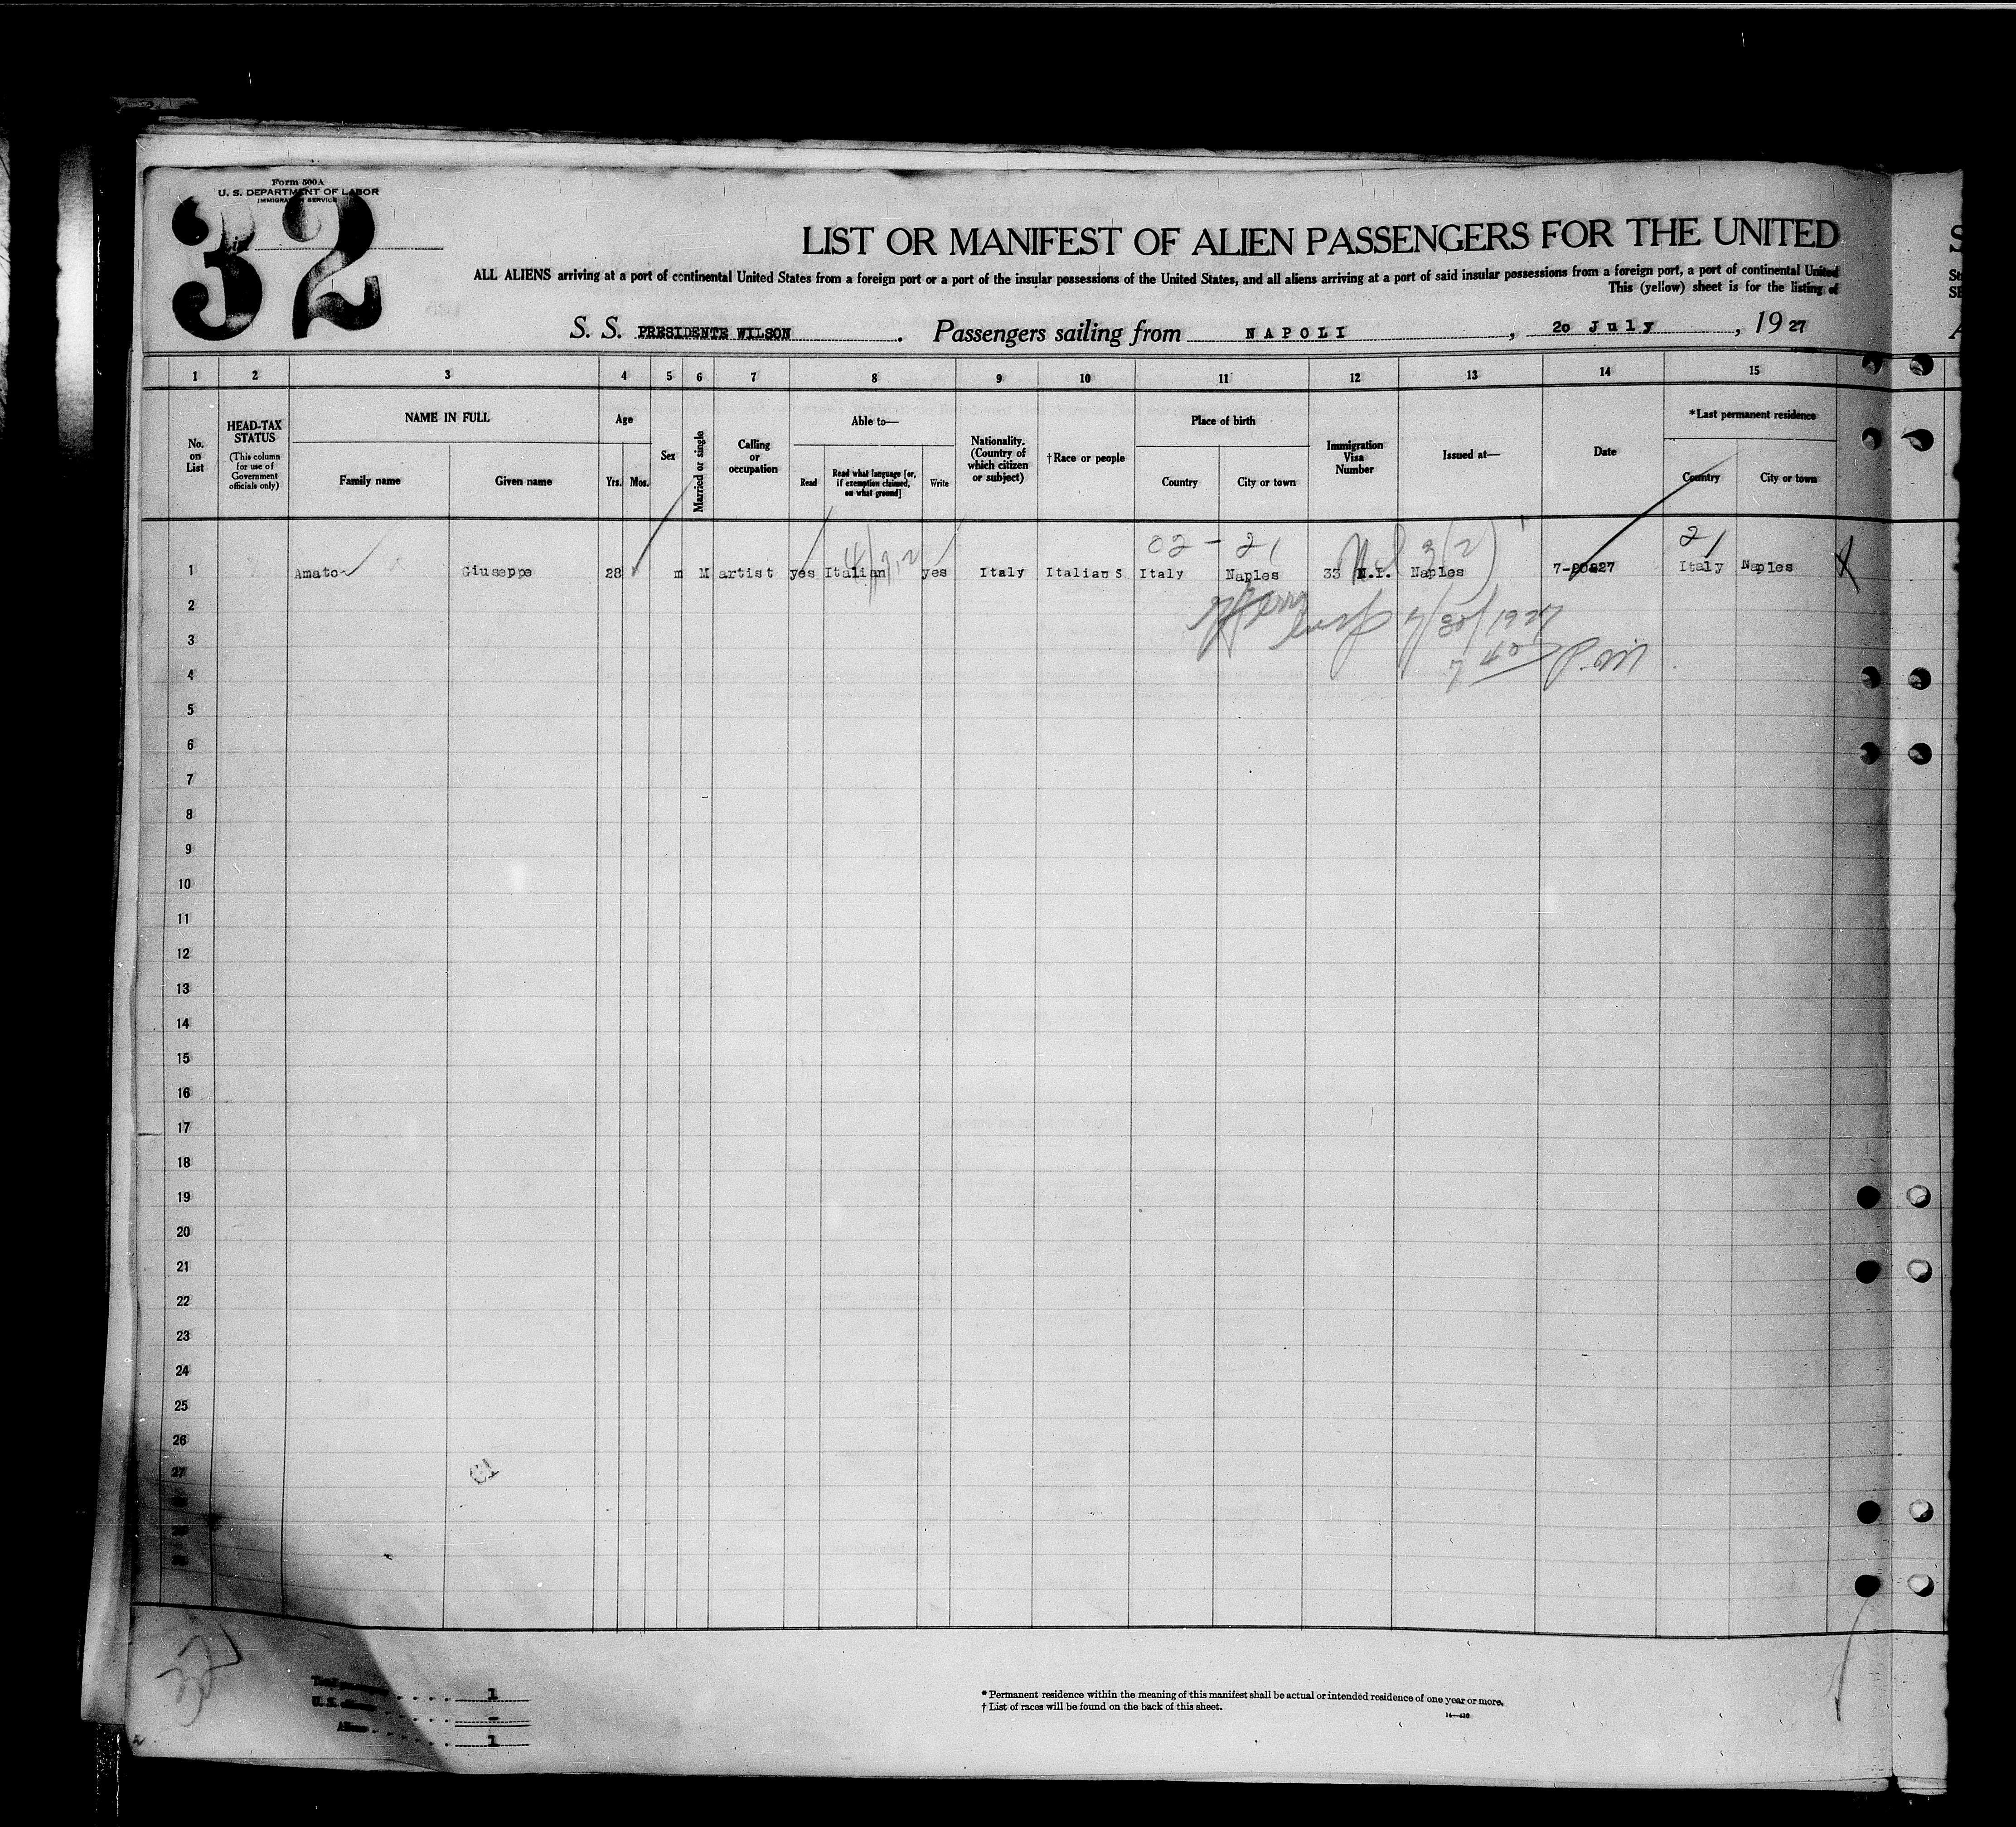 Form 500A
U. S. DEPARTMENT OF LABOR
IMMIGRATION SERVICE
32
LIST OR MANIFEST OF ALIEN PASSENGERS FOR THE UNITED
ALL ALIENS arriving at a port of continental United States from a foreign port or a port of the insular possessions of the United States, and all aliens arriving at a port of said insular possessions from a foreign port, a port of continental United
This (yellow) sheet is for the listing of
S. S. PRESIDENTE WILSON . Passengers sailing from NAPOLI , 20 July , 19 27
1 2 3 4 5 6 7 8 9 10 11 12 13 14 15
No. on List
HEAD-TAX STATUS (This column for use of Government officials only)
NAME IN FULL
Family name Given name
Age
Yrs. Mos.
Sex
Married or single
Calling or occupation
Able to—
Read
Read what language [or, if exemption claimed, on what ground]
Write
Nationality. (Country of which citizen or subject)
†Race or people
Place of birth
Country City or town
Immigration Visa Number
Issued at—
Date
*Last permanent residence
Country City or town
02 - 21 21
1 Amato Giuseppe 28 m M artist yes Italian yes Italy Italian S Italy Naples 33 N.I. Naples 7-20827 Italy Naples
2
3
4
5
6
7
8
9
10
11
12
13
14
15
16
17
18
19
20
21
22
23
24
25
26
27
Total passengers 1
U. S. citizens –
Aliens 1
* Permanent residence within the meaning of this manifest shall be actual or intended residence of one year or more.
† List of races will be found on the back of this sheet.
14—430